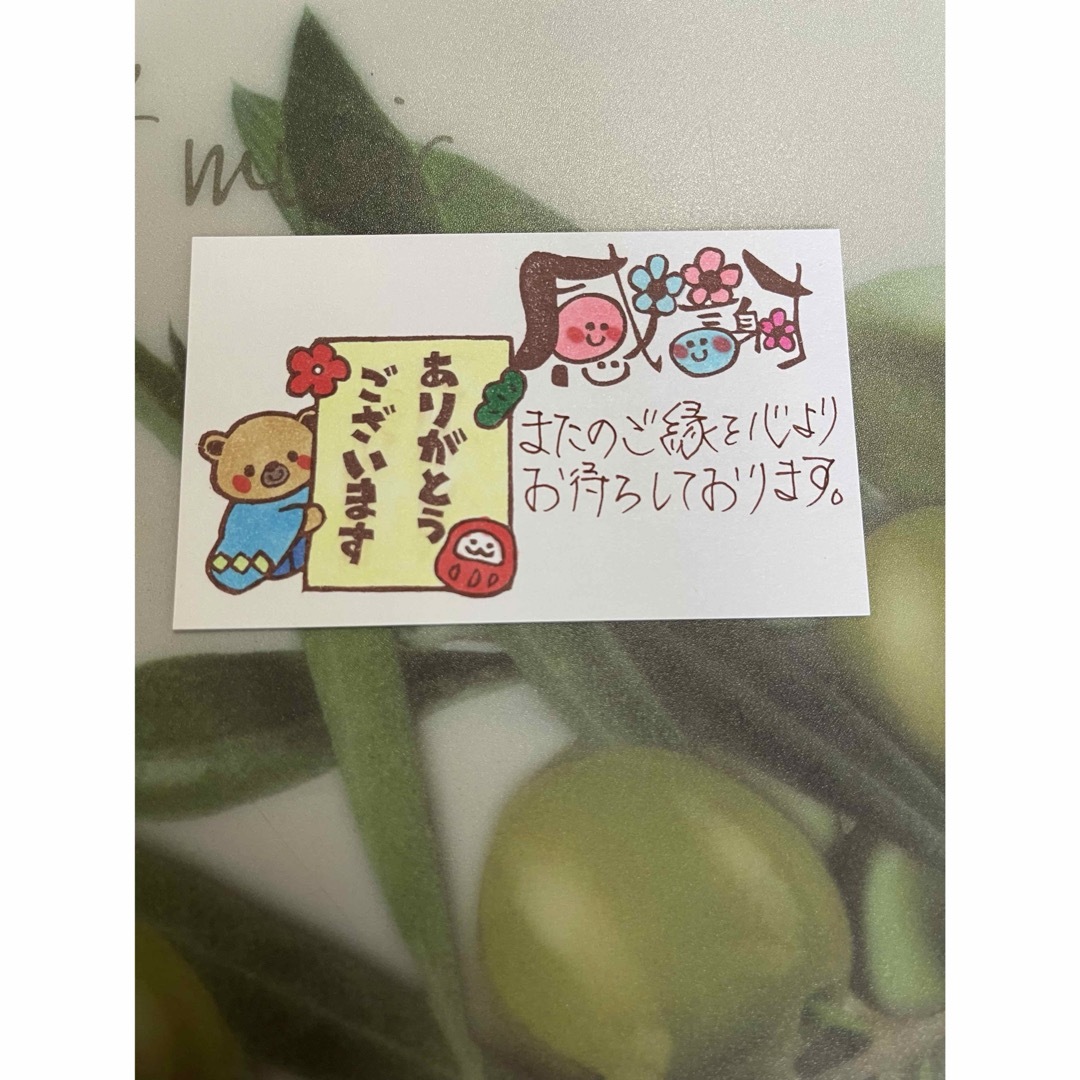 感謝
ありがとう
ございます
またのご縁を心より
お待ちしております。